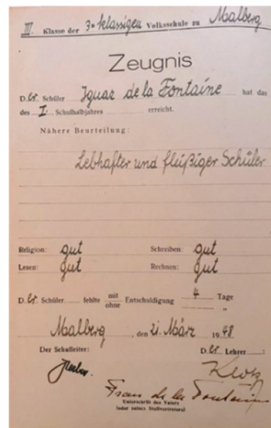 III. Klasse der 3-klassigen Volksschule zu Malberg
Zeugnis
D.er Schüler Ignaz de la Fontaine hat das
des I. Schulhalbjahres erreicht.
Nähere Beurteilung:
Lebhafter und fleißiger Schüler
Religion: gut Schreiben: gut
Lesen: gut Rechnen: gut
D.er Schüler fehlte mit ohne Entschuldigung 4 Tage
Malberg, den 21. März 1948
Der Schulleiter: D.er Lehrer:
Klotz
Frans de la Fontaine
Unterschrift des Vaters
(oder seines Stellvertreters)